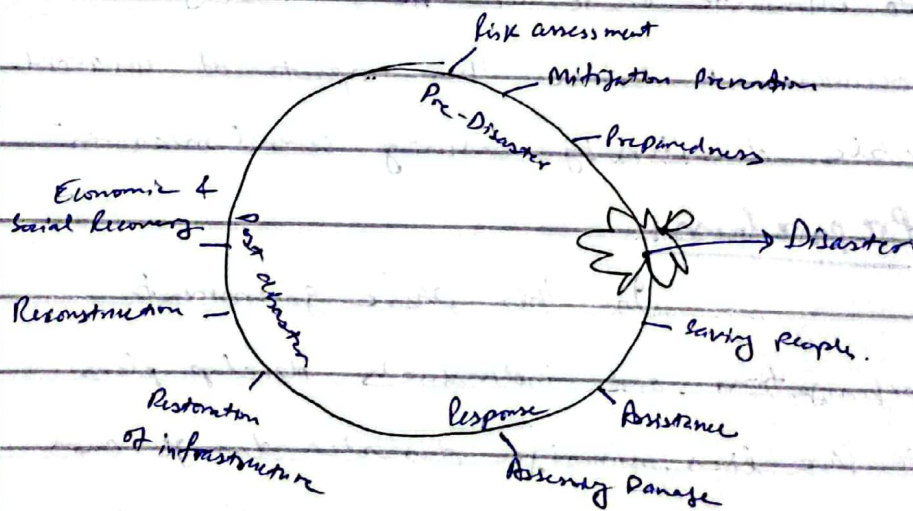 Risk assessment
Mitigation Prevention
Pre-Disaster
Preparedness
Disaster
Saving people.
Assistance
Response
Assessing Damage
Restoration
of infrastructure
Reconstruction
Post disaster
Economic &
Social Recovery